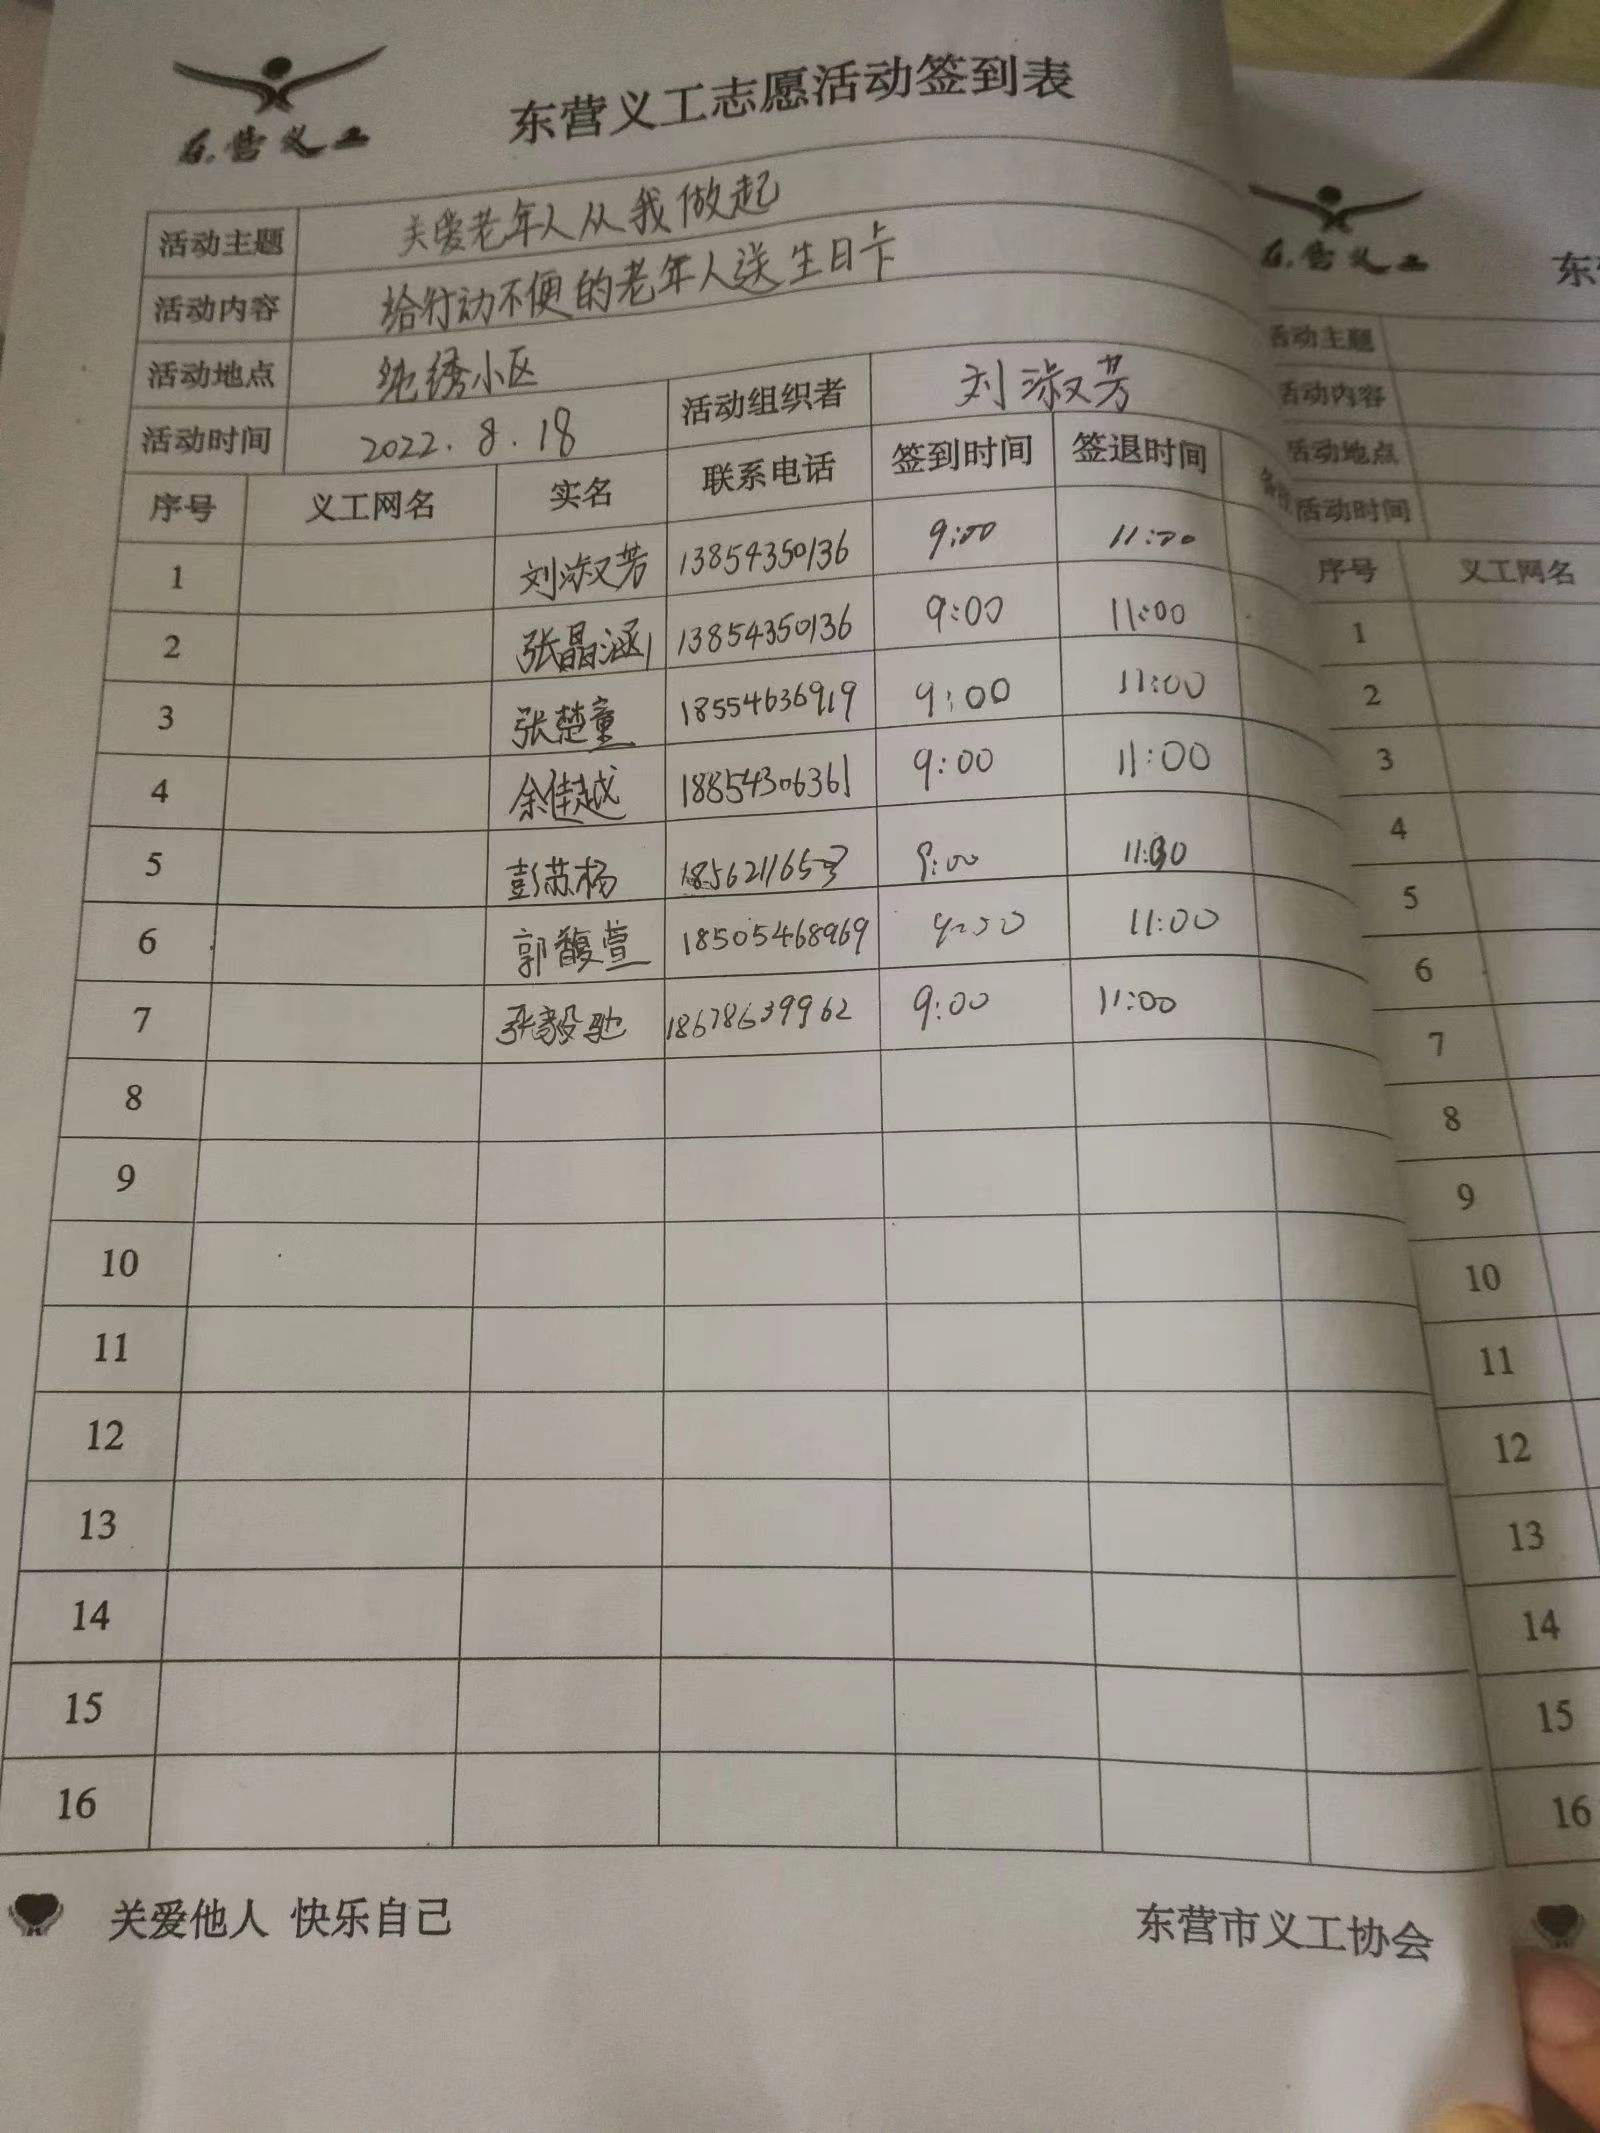 东营义工
东营义工志愿活动签到表
活动主题 关爱老年人从我做起
活动内容 给行动不便的老年人送生日卡
活动地点 纯绣小区 活动组织者 刘淑芳
活动时间 2022.8.18
序号 义工网名 实名 联系电话 签到时间 签退时间
1 刘淑芳 13854350136 9:00 11:00
2 张晶涵 13854350136 9:00 11:00
3 张楚童 18554636919 9:00 11:00
4 余佳越 18854306361 9:00 11:00
5 彭苏杨 9:00 11:00
6 郭馥萱 18505468969 11:00
7 张毅驰 18678639962 9:00 11:00
8
9
10
11
12
13
14
15
16
关爱他人 快乐自己
东营市义工协会
东营义工
东
活动主题
活动内容
活动地点
活动时间
序号 义工网名
1
2
3
4
5
6
7
8
9
10
11
12
13
14
15
16